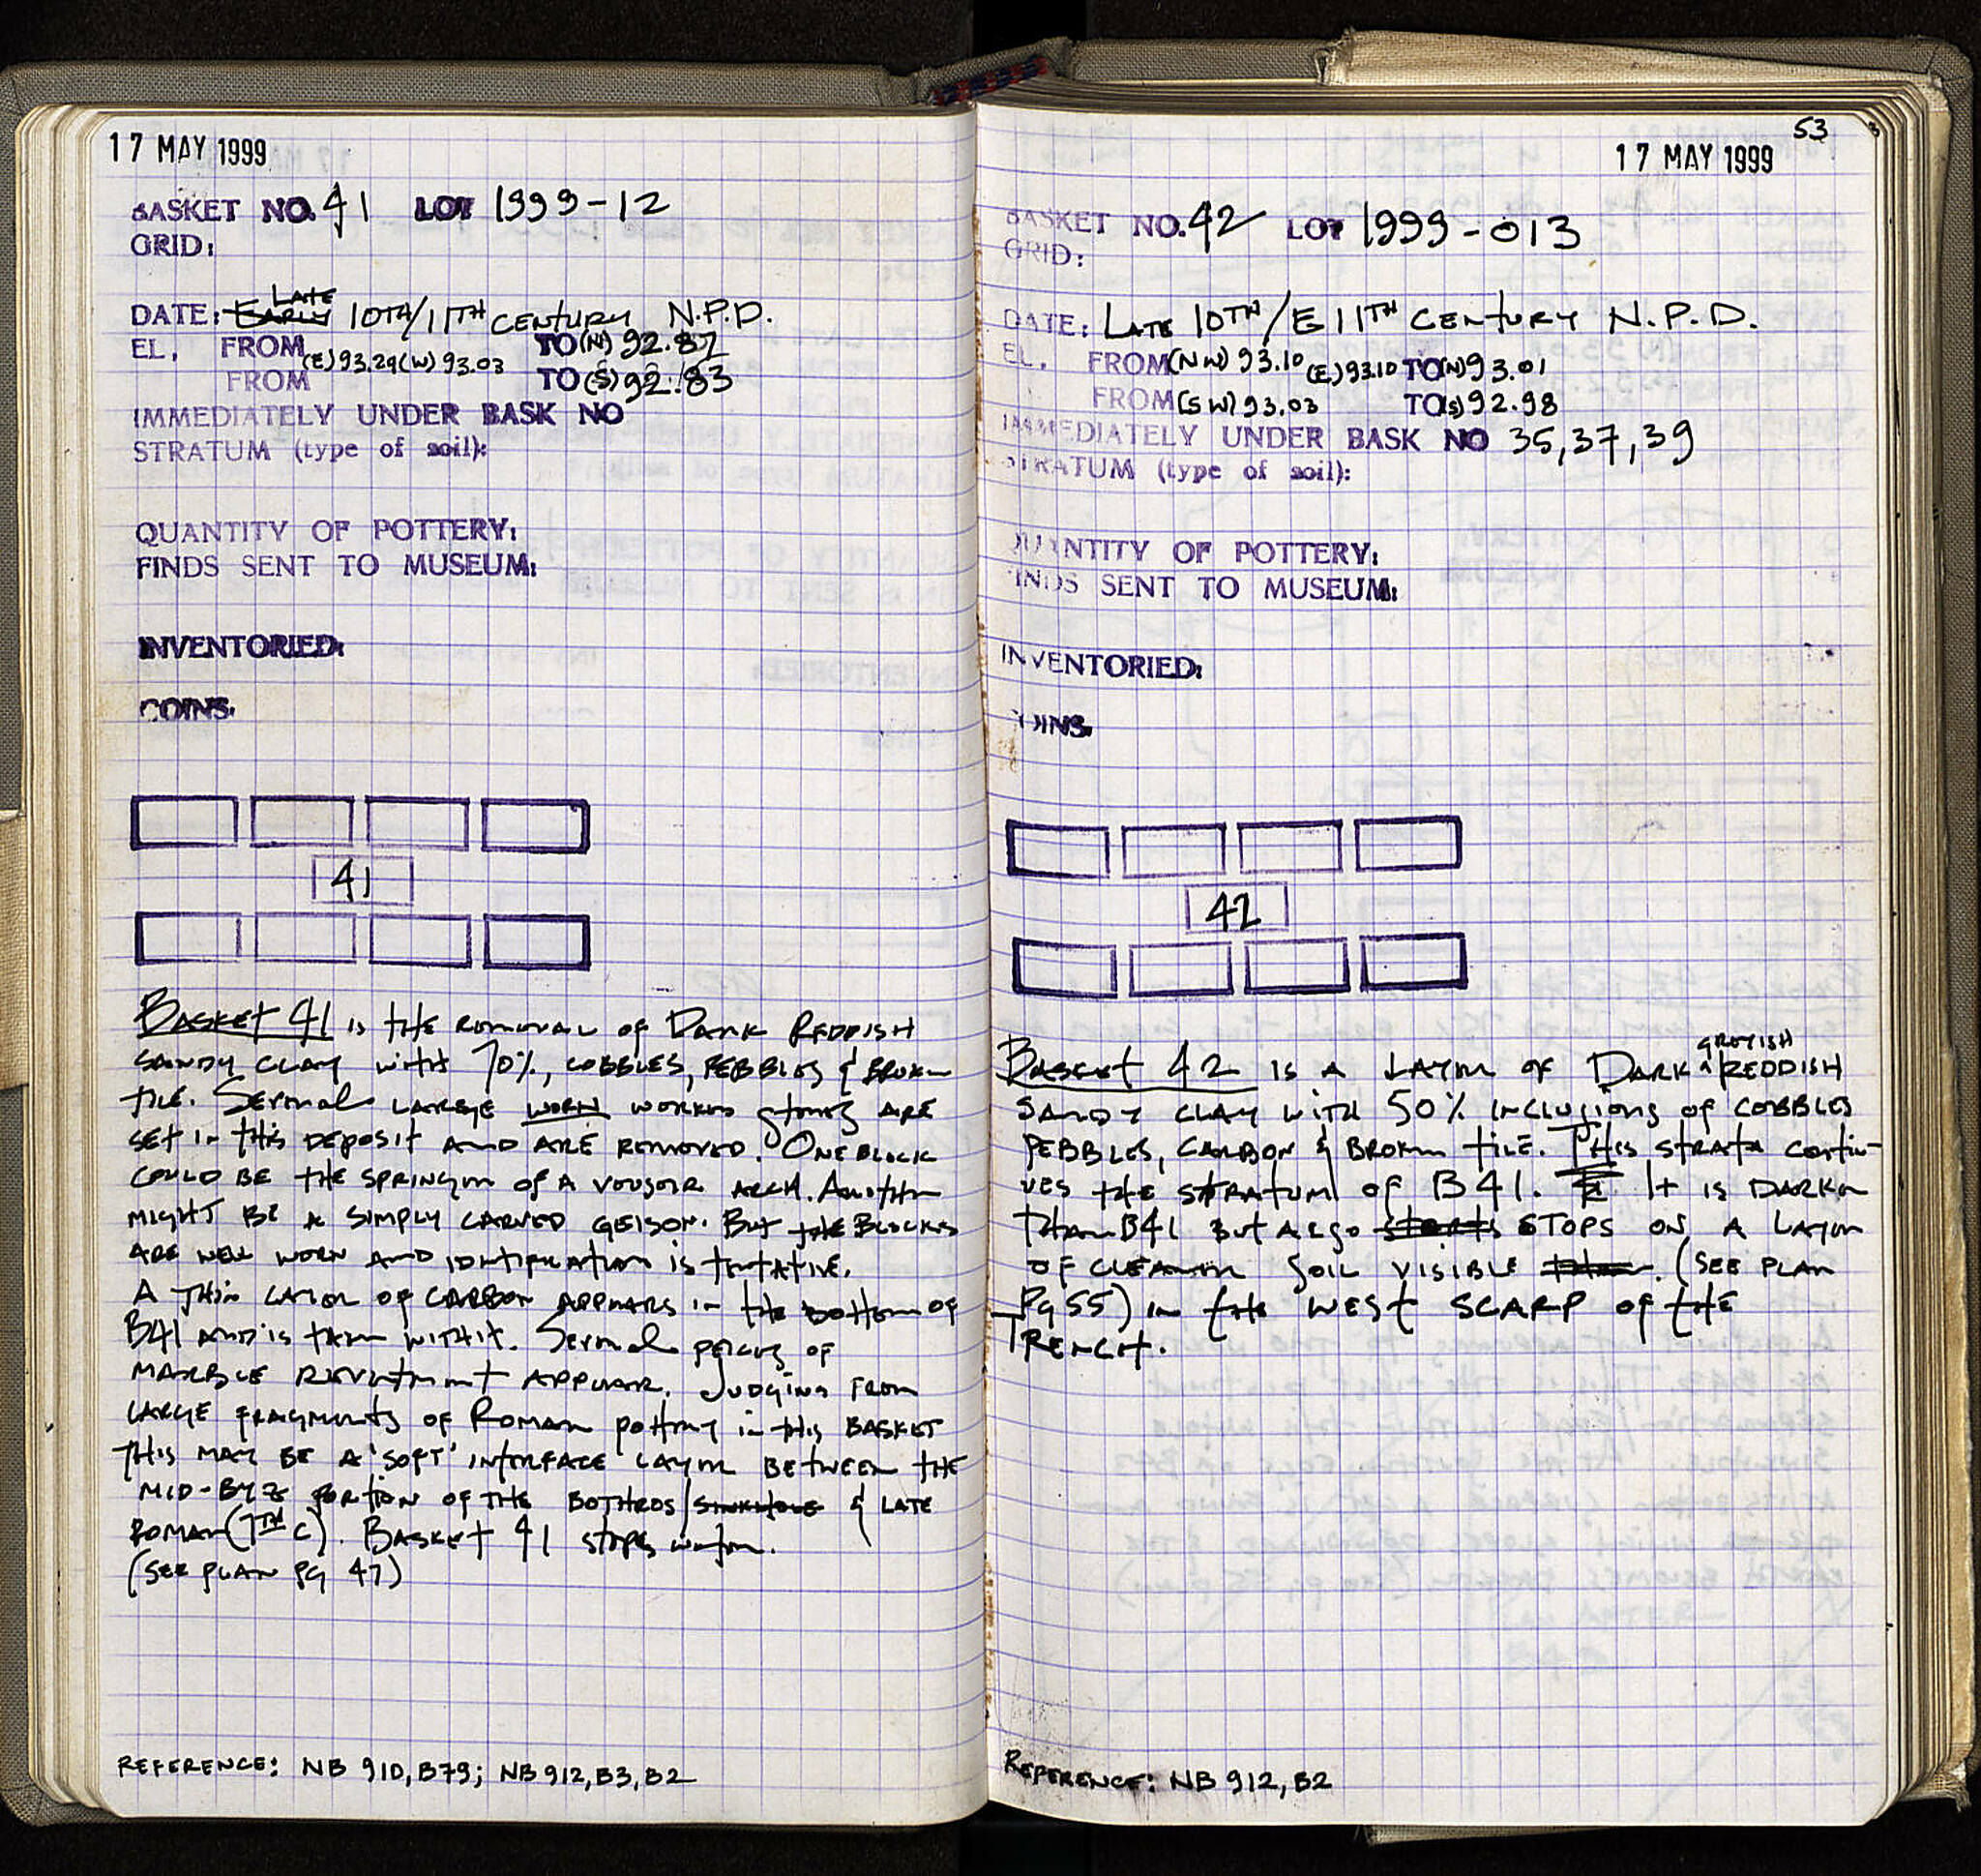 17 MAY 1999
BASKET NO. 41 LOT 1999-12
GRID:
LATE
DATE: EARLY 10TH/11TH CENTURY N.P.D.
EL. FROM (E) 93.29 (W) 93.03 TO (N) 92.87
FROM TO (S) 92.83
IMMEDIATELY UNDER BASK NO
STRATUM (type of soil):
QUANTITY OF POTTERY:
FINDS SENT TO MUSEUM:
INVENTORIED:
COINS:
41
BASKET 41 IS THE REMOVAL OF DARK REDDISH
SANDY CLAY WITH 70%, COBBLES, PEBBLES & BROKEN
TILE. SEVERAL LARGE WORN WORKED STONES ARE
SET IN THIS DEPOSIT AND ARE REMOVED. ONE BLOCK
COULD BE THE SPRINGER OF A VOUSOIR ARCH. ANOTHER
MIGHT BE A SIMPLY CARVED GEISON. BUT THE BLOCKS
ARE WELL WORN AND IDENTIFICATION IS TENTATIVE.
A THIN LAYER OF CARBON APPEARS IN THE BOTTOM OF
B41 AND IS TAKEN WITH IT. SEVERAL PIECES OF
MARBLE REVETMENT APPEAR. JUDGING FROM
LARGE FRAGMENTS OF ROMAN POTTERY IN THIS BASKET
THIS MAY BE A 'SOFT' INTERFACE LAYER BETWEEN THE
MID-BYZ PORTION OF THE BOTHROS/SINKHOLE & LATE
ROMAN (7TH C). BASKET 41 STOPS
(SEE PLAN PG 47)
REFERENCE: NB 910, B79; NB 912, B3, B2
53
17 MAY 1999
BASKET NO. 42 LOT 1999-013
GRID:
DATE: LATE 10TH/E 11TH CENTURY N.P.D.
EL. FROM (NW) 93.10 (E) 93.10 TO (N) 93.01
FROM (SW) 93.03 TO (S) 92.98
IMMEDIATELY UNDER BASK NO 35, 37, 39
STRATUM (type of soil):
QUANTITY OF POTTERY:
FINDS SENT TO MUSEUM:
INVENTORIED:
COINS:
42
GREYISH
BASKET 42 IS A LAYER OF DARK REDDISH
SANDY CLAY WITH 50% INCLUSIONS OF COBBLES
PEBBLES, CARBON & BROKEN TILE. THIS STRATA CONTIN-
UES THE STRATUM OF B41. IT IS DARKER
THAN B41 BUT ALSO STARTS STOPS ON A LAYER
OF CLEANER SOIL VISIBLE (SEE PLAN
PG 55) IN THE WEST SCARP OF THE
TRENCH.
REFERENCE: NB 912, B2